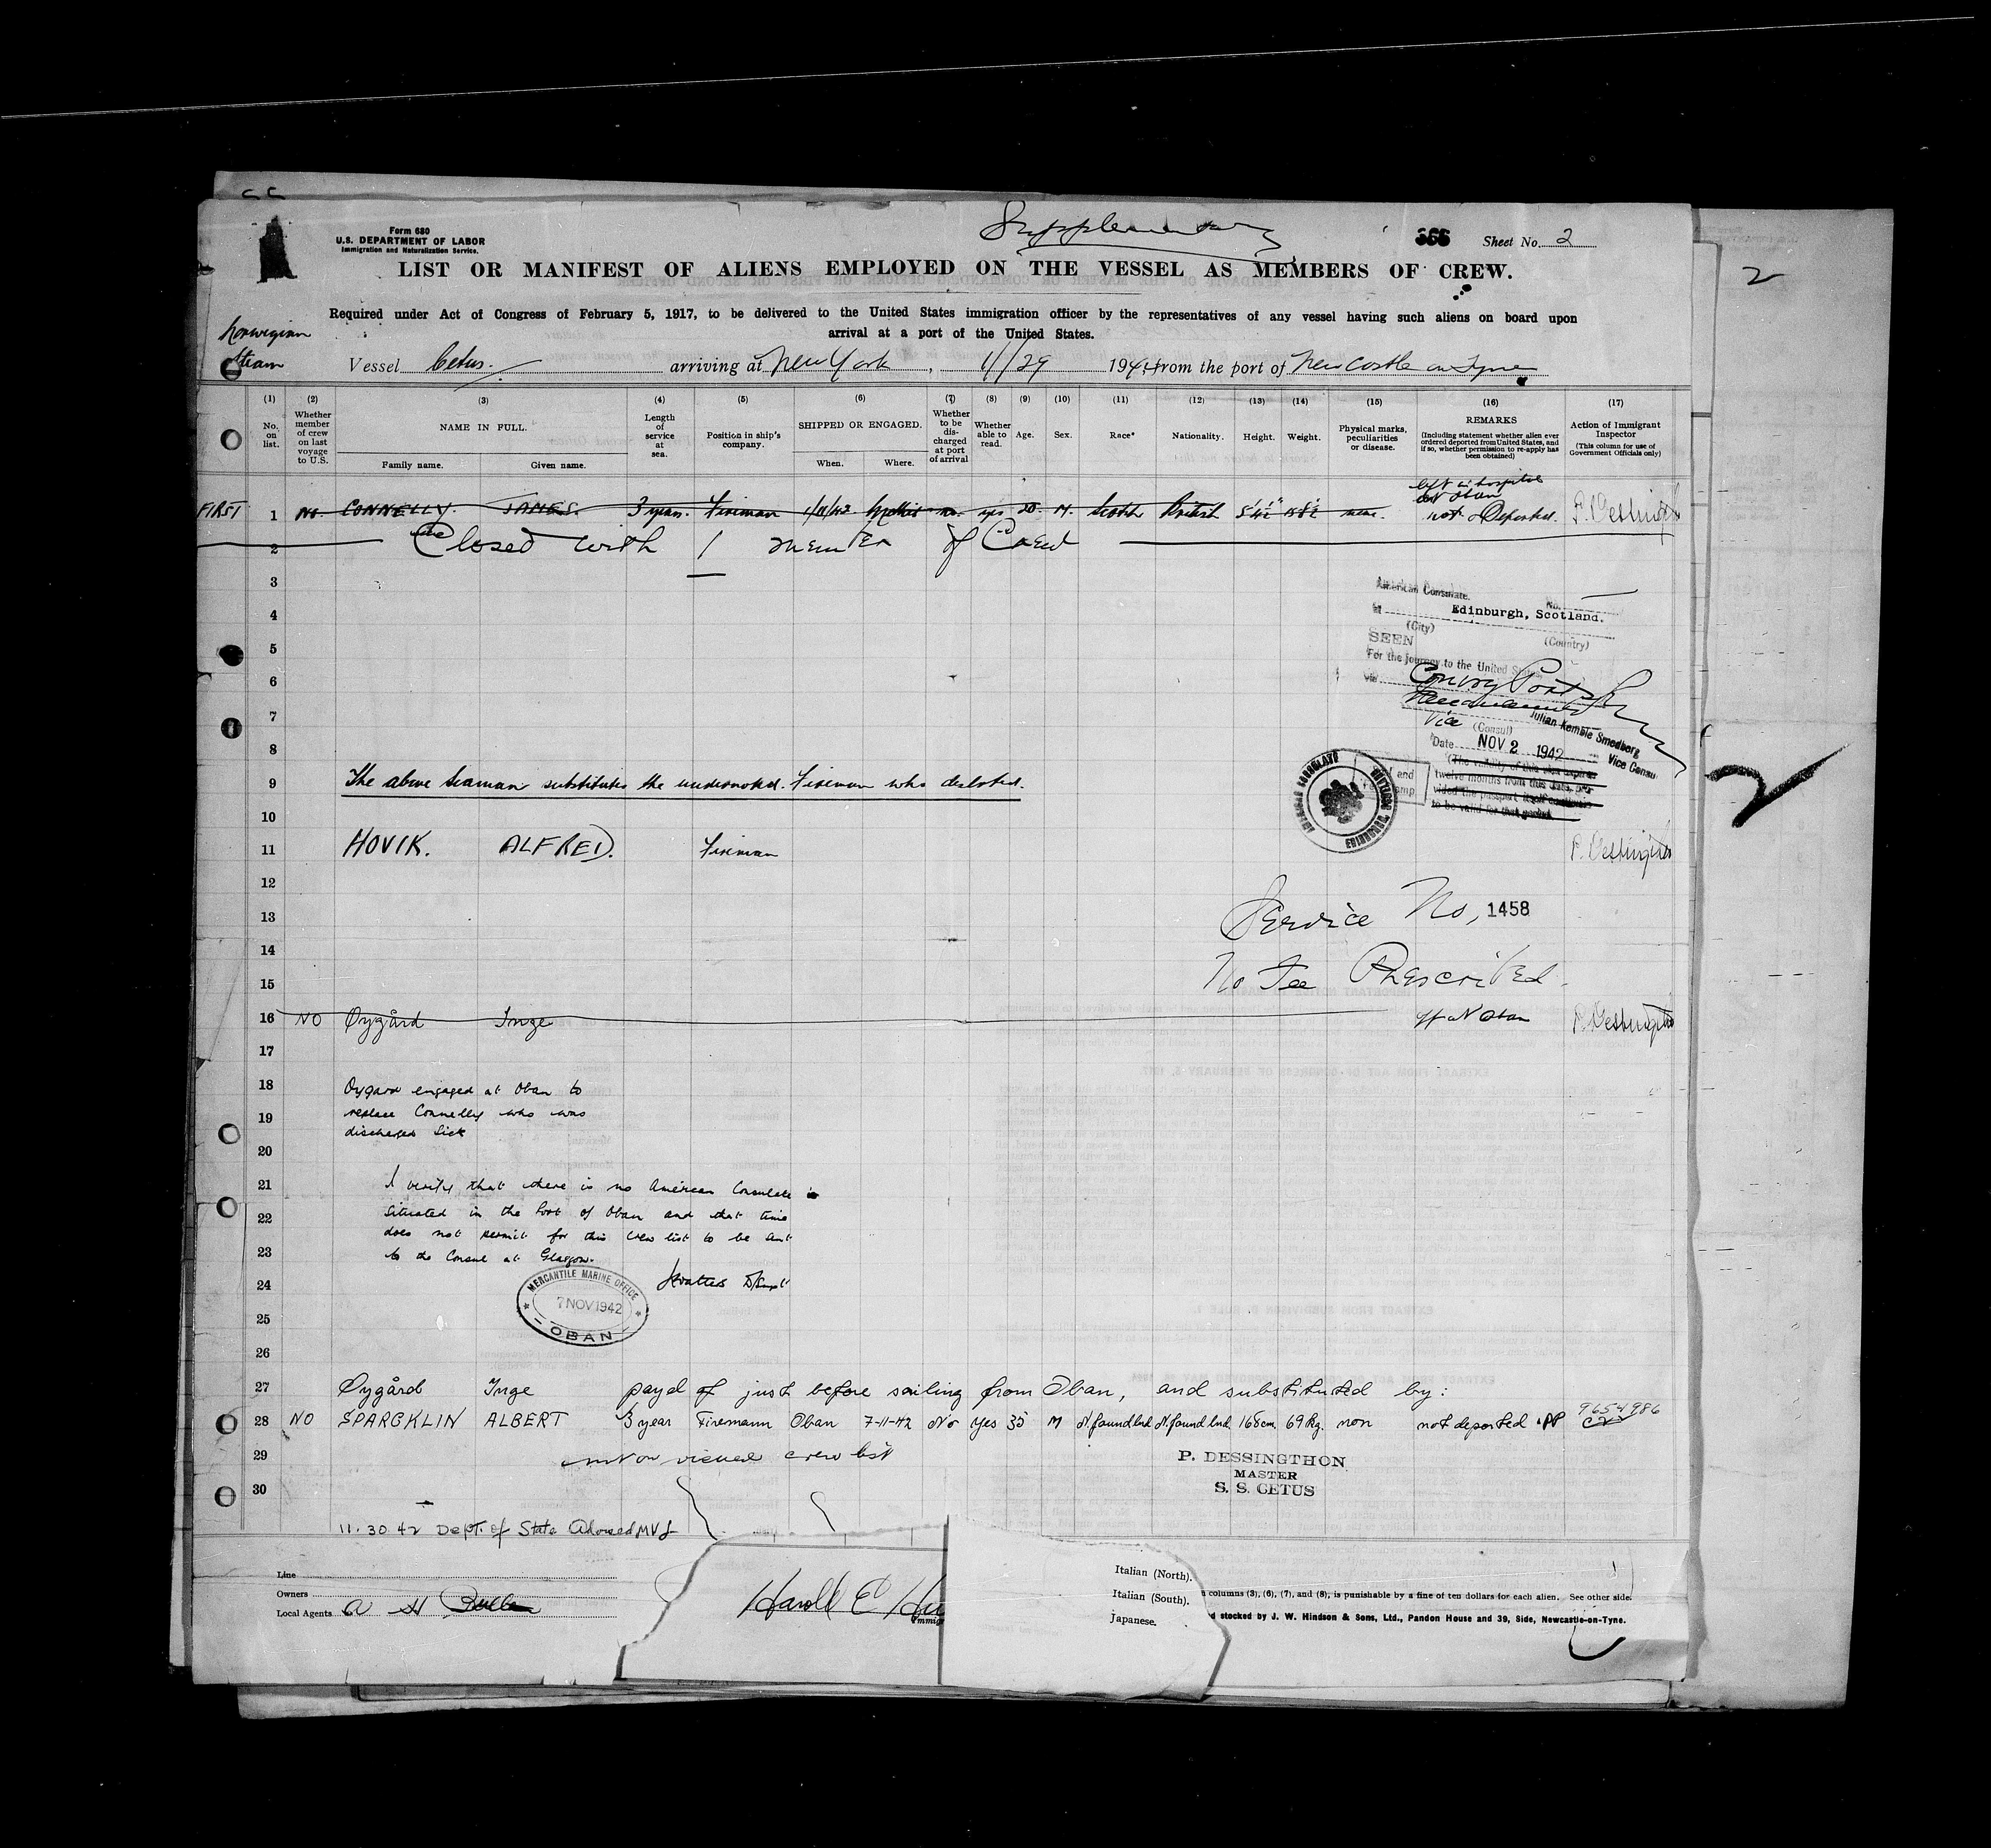 Form 680
U.S. DEPARTMENT OF LABOR
Immigration and Naturalization Service.
Supplementary
Sheet No. 2
2
LIST OR MANIFEST OF ALIENS EMPLOYED ON THE VESSEL AS MEMBERS OF CREW.
Required under Act of Congress of February 5, 1917, to be delivered to the United States immigration officer by the representatives of any vessel having such aliens on board upon
arrival at a port of the United States.
Norwegian
Steam
Vessel Cetus. arriving at New York, 11/29 194 from the port of Newcastle on Tyne
(1) (2) (3) (4) (5) (6) (7) (8) (9) (10) (11) (12) (13) (14) (15) (16) (17)
No. on list.
Whether member of crew on last voyage to U.S.
NAME IN FULL.
Family name. Given name.
Length of service at sea.
Position in ship's company.
SHIPPED OR ENGAGED.
When. Where.
Whether to be discharged at port of arrival
Whether able to read.
Age.
Sex.
Race*
Nationality.
Height.
Weight.
Physical marks, peculiarities or disease.
REMARKS
(Including statement whether alien ever ordered deported from United States, and if so, whether permission to re-apply has been obtained)
Action of Immigrant Inspector
(This column for use of Government Officials only)
left in hospital
at Oban
FIRST 1 No. CONNELLY. JAMES. 3 years. Fireman 1/11/42 Methil no. yes 20. M. Scotch British none. not Deported. P. Dessingthon
2 Closed with 1 member of Crew
3
American Consulate. No.
4
at Edinburgh, Scotland.
(City) (Country)
5
SEEN
For the journey to the United States
6
via Convoy Port
7
Vice (Consul) Julian Kemble Smedberg
Vice Consul
8
Date NOV 2 1942
(The validity of this visa expires
twelve months from this date, pro-
vided the passport itself continues
to be valid for that period
AMERICAN CONSULATE EDINBURGH, SCOTLAND
9 The above seaman substitutes the undernoted. Fireman who deserted.
10
11 HOVIK. ALFRED. Fireman P. Dessingthon
12
13 Service No, 1458
14
15 No Fee Prescribed.
16 NO Øygård Inge Oban P. Dessingthon
17
18 Oygard engaged at Oban to
19 replace Connelly who was
discharged Sick
20
21 I verify that there is no American Consulate is
22 situated in the Port of Oban and that time
does not permit for this crew list to be sent
23 to the Consul at Glasgow.
24
MERCANTILE MARINE OFFICE
7 NOV 1942
OBAN
25
26
27 Øygård Inge payd of just before sailing from Oban, and substituted by:
28 NO SPARCKLIN ALBERT 3 year Firemann Oban 7-11-42 No Yes 35 M N.foundlnd N.foundlnd 168cm. 69kg. non not deported
29 not on visaed crew list
P. DESSINGTHON
MASTER
S. S. CETUS
30
11.30.42 Dept. of State Advised MVJ
Line
Owners
Local Agents A H Bull
Harold E
Italian (North).
Italian (South).
Japanese.
columns (3), (6), (7), and (8), is punishable by a fine of ten dollars for each alien. See other side.
stocked by J. W. Hindson & Sons, Ltd., Pandon House and 39, Side, Newcastle-on-Tyne.